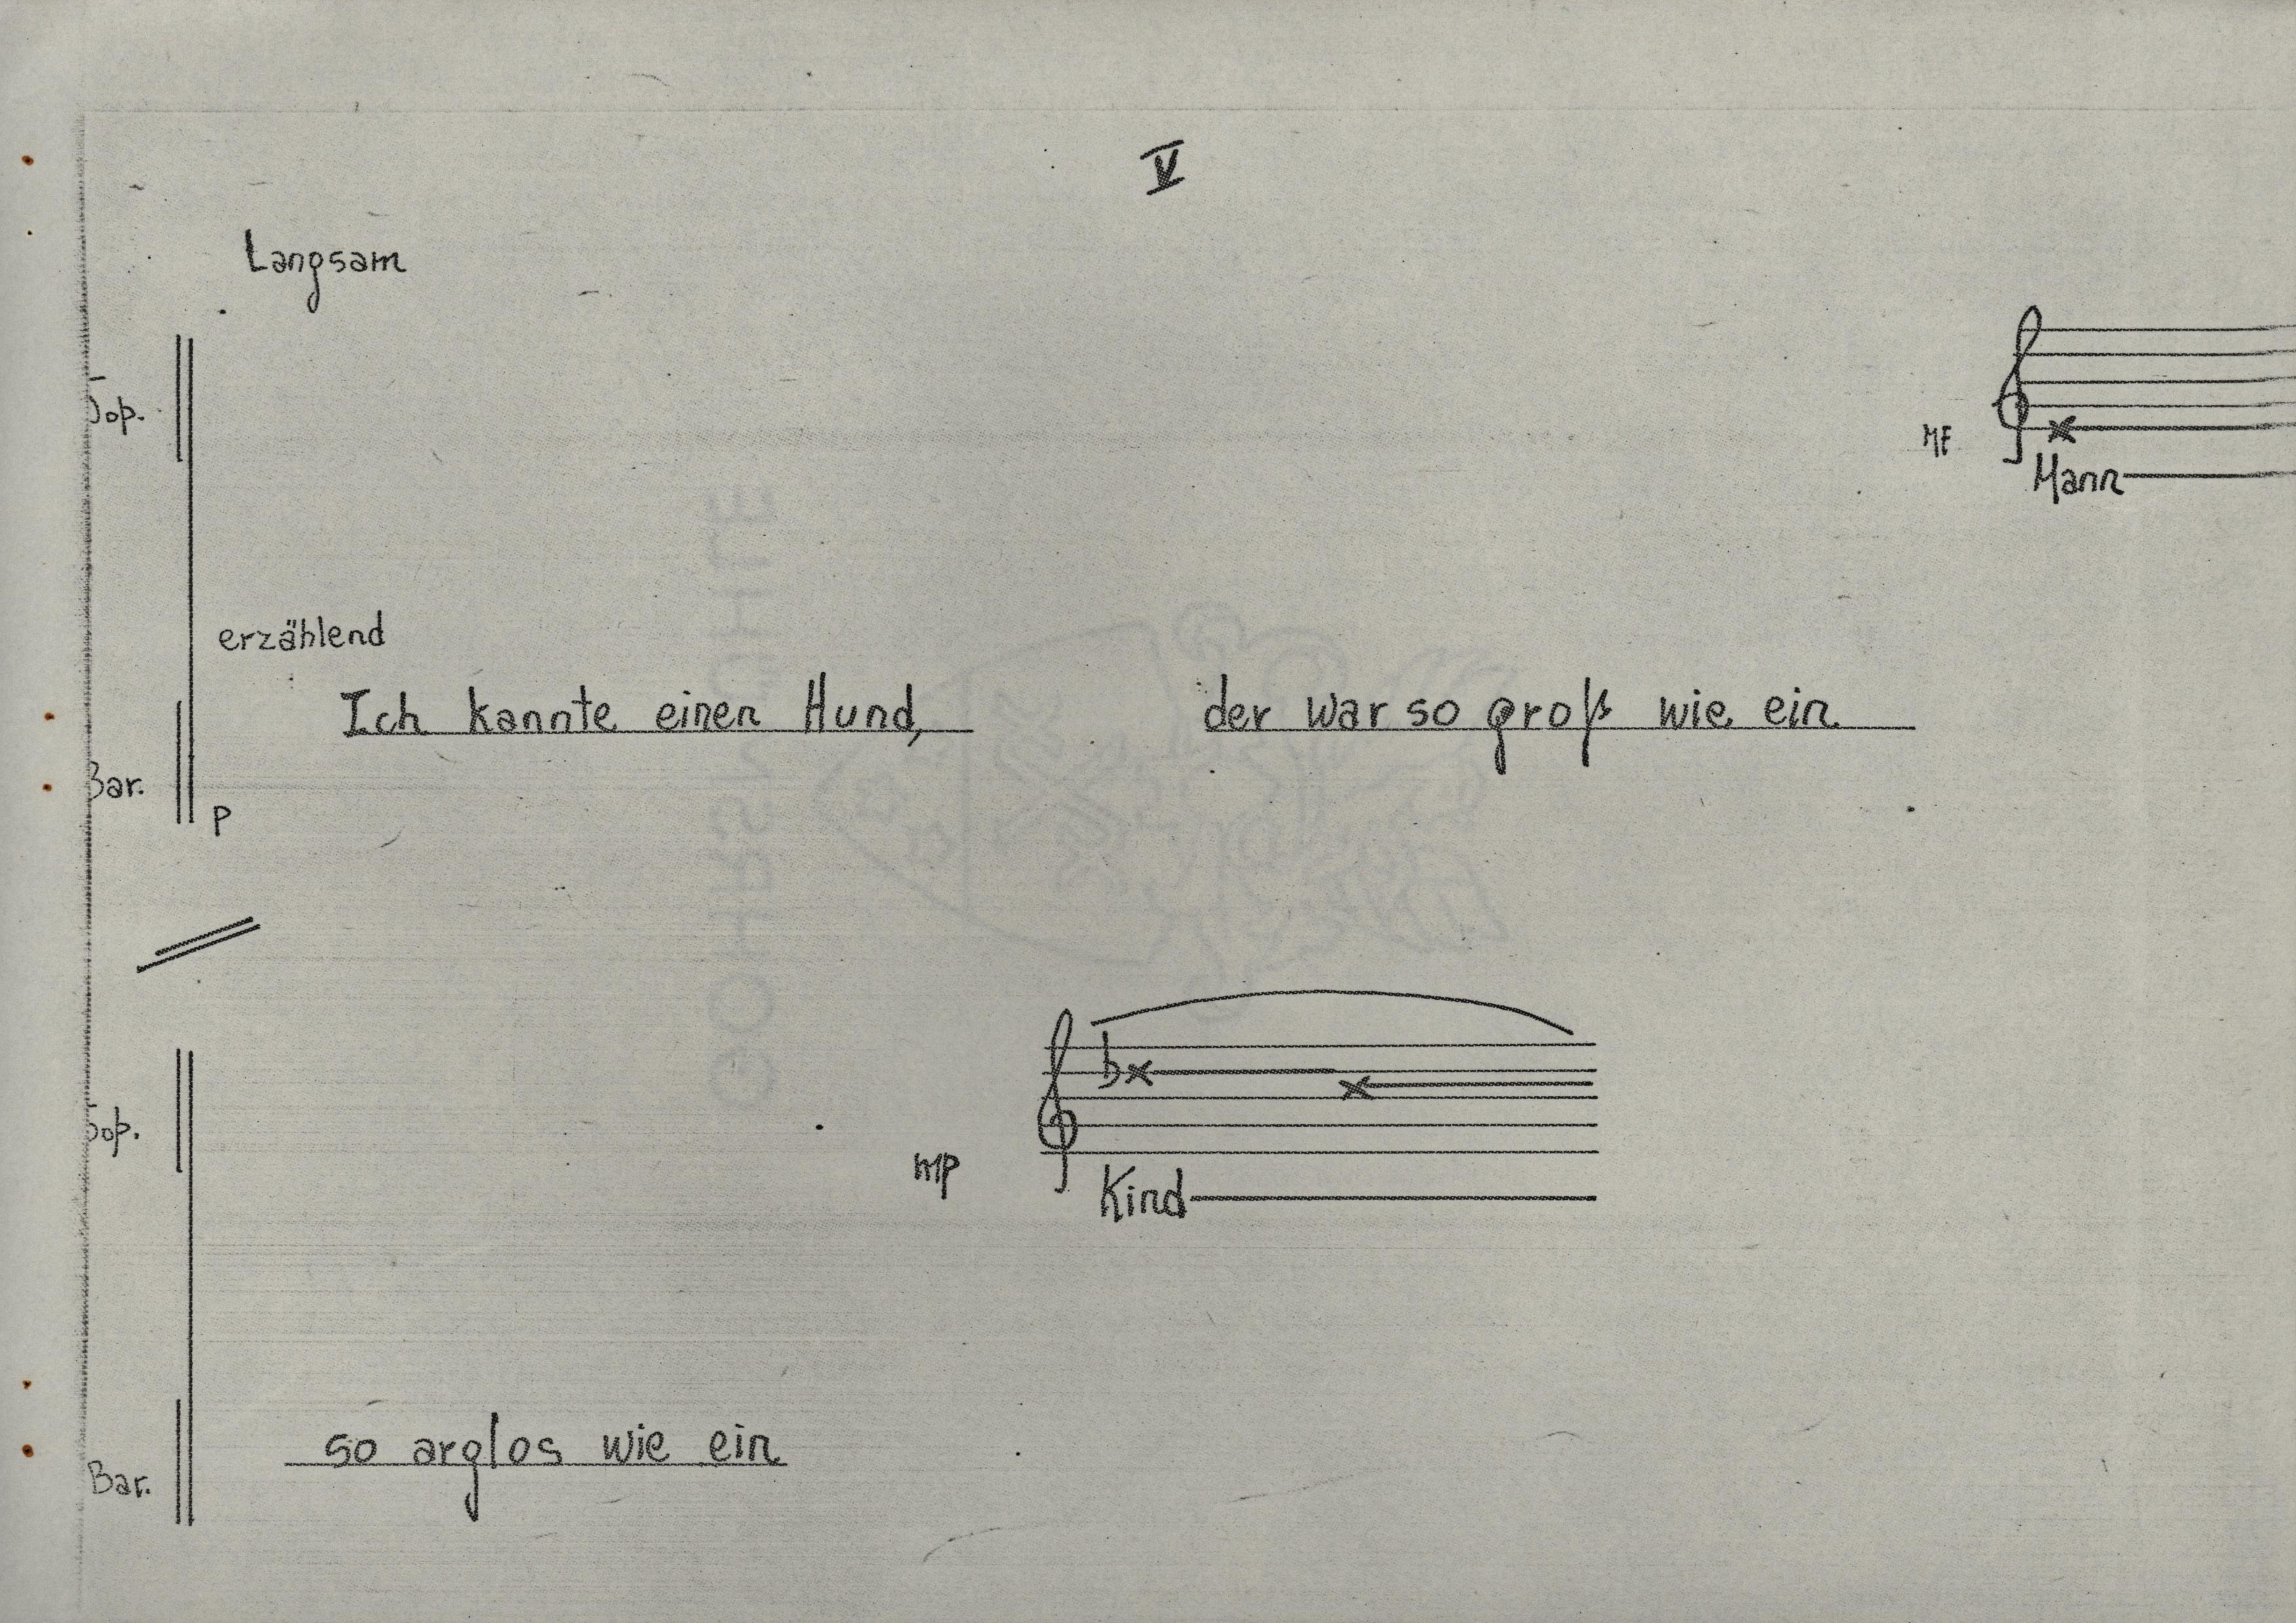 V
Langsam
Sop.
MF
Mann
erzählend
Ich kannte einen Hund, der war so groß wie ein
Bar.
P
Sop.
mp
Kind
so arglos wie ein
Bar.